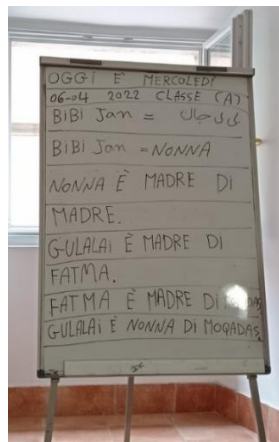 OGGI È MERCOLEDI
06-04 2022 CLASSE (A)
BiBi Jan = بی بی جان
BiBi Jan = NONNA
NONNA È MADRE DI
MADRE.
GULALAI È MADRE DI
FATMA.
FATMA È MADRE DI
GULALAI È NONNA DI MOQADAS.